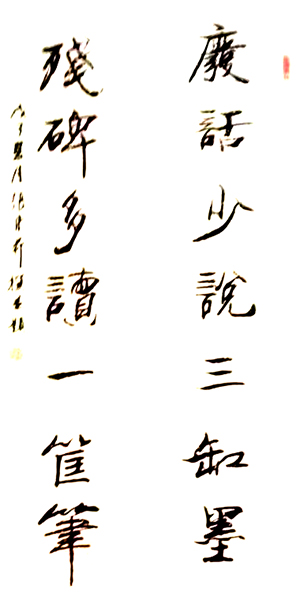 廢話少說三缸墨
殘碑多讀一筐筆